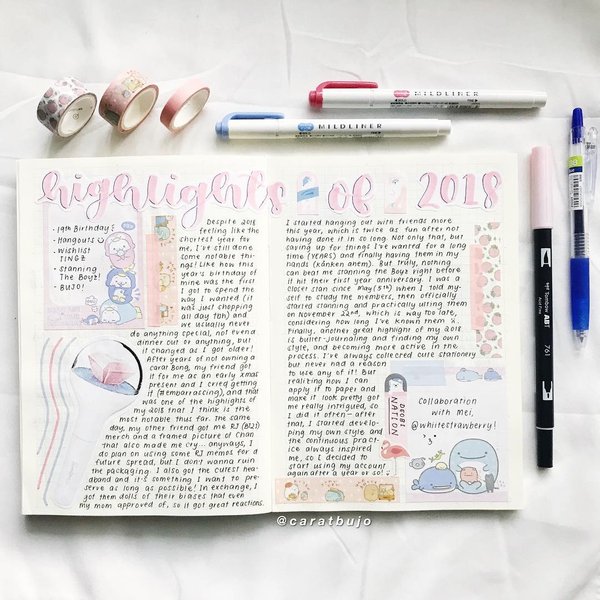 highlights of 2018
- 19th Birthday!
- Hangouts
- wishlist TINGZ
- Stanning The Boyz!
- BUJO!
Despite 2018
feeling like the
shortest year for
me, I've still done
some notable thi-
ngs! Like how this
year's birthday of
mine was the first
I got to spend the
way I wanted (it
was just shopping
all day tbh) and
we usually never
do anything special, not even a
dinner out or anything, but
it changed as I got older!
After years of not owning a
carat bong, my friend got
it for me as an early xmas
present and I cried getting
it (#embarrassing), and that
was one of the highlights of
my 2018 that I think is the
most notable thus far. The same
day, my other friend got me RJ (BT21)
merch and a framed picture of Chan
that also made me cry... anyways, I
do plan on using some RJ memos for a
future spread, but I don't wanna ruin
the packaging. I also got the cutest he-
adband and it's something I want to pre-
serve as long as possible! In exchange, I
got them dolls of their biases that even
my mom approved of, so it got great reactions.
I started hanging out with friends more
this year, which is twice as fun after not
having done it in so long. Not only that, but
saving up for things I've wanted for a long
time (YEARS) and finally having them in my
hands (kanken ahem). But truly, nothing
can beat me stanning The Boyz right before
it hit their first year anniversary. I was a
closet stan since May (5th) when I told my-
self to study the members, then officially
started stanning and practically ulting them
on November 22nd, which is way too late,
considering how long I've known them.
Finally, another great highlight of my 2018
is bullet-journaling and finding my own
style, and becoming more active in the
process. I've always collected cute stationery
but never had a reason
to use any of it! But
realizing how I can
apply it to paper and
make it look pretty got
me really intrigued, so
I did it often - after
that, I started develo-
ping my own style and
the continuous pract-
ice always inspired
me, so I decided to
start using my account
again after a year or so!
DEOBI NATION
Collaboration
with Mei,
@whitestrawberry!
@caratbujo
MILDLINER
MILDLINER
Tombow ABT
761